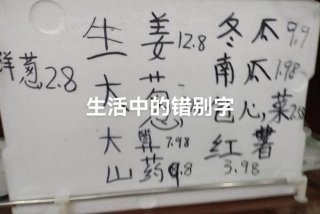 生姜12.8 冬瓜9.9
洋葱2.8 大葱 南瓜1.98
生活中的错别字
大 7.98 包心菜
山药9.8 红薯3.98